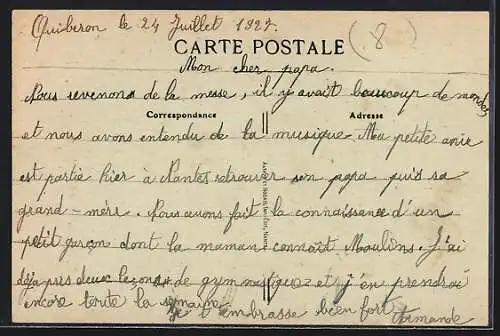 Quiberon le 24 Juillet 1927.
(8)
CARTE POSTALE
Mon cher papa.
Nous revenons de la messe, il y avait beaucoup de monde,
Correspondance
Adresse
et nous avons entendu de la musique. Ma petite amie
est partie hier à Nantes retrouver son papa puis sa
grand-mère. Nous avons fait la connaissance d'un
petit garçon dont la maman connaît Moulins. J'ai
déjà pris deux leçons de gymnastique et j'en prendrai
encore toute la semaine.
Je t'embrasse bien fort Armande